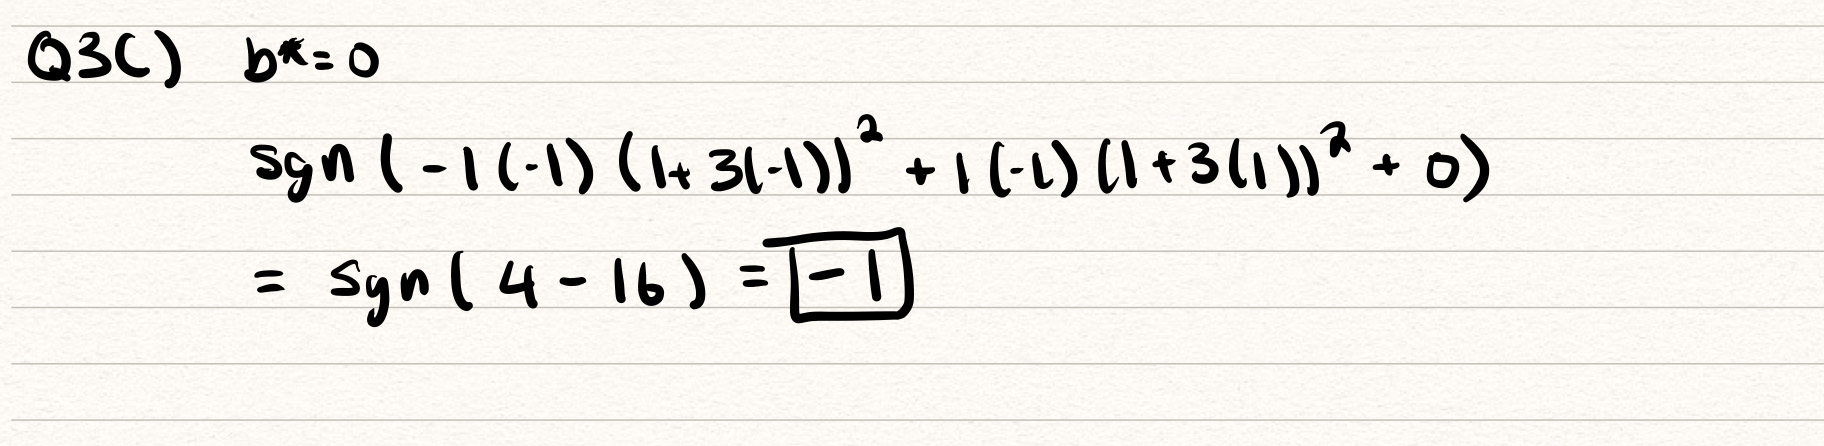 Q3C) b*=0
sgn(-1(-1)(1+3(-1))² + 1(-1)(1+3(1))² + 0)
= sgn(4-16) = -1